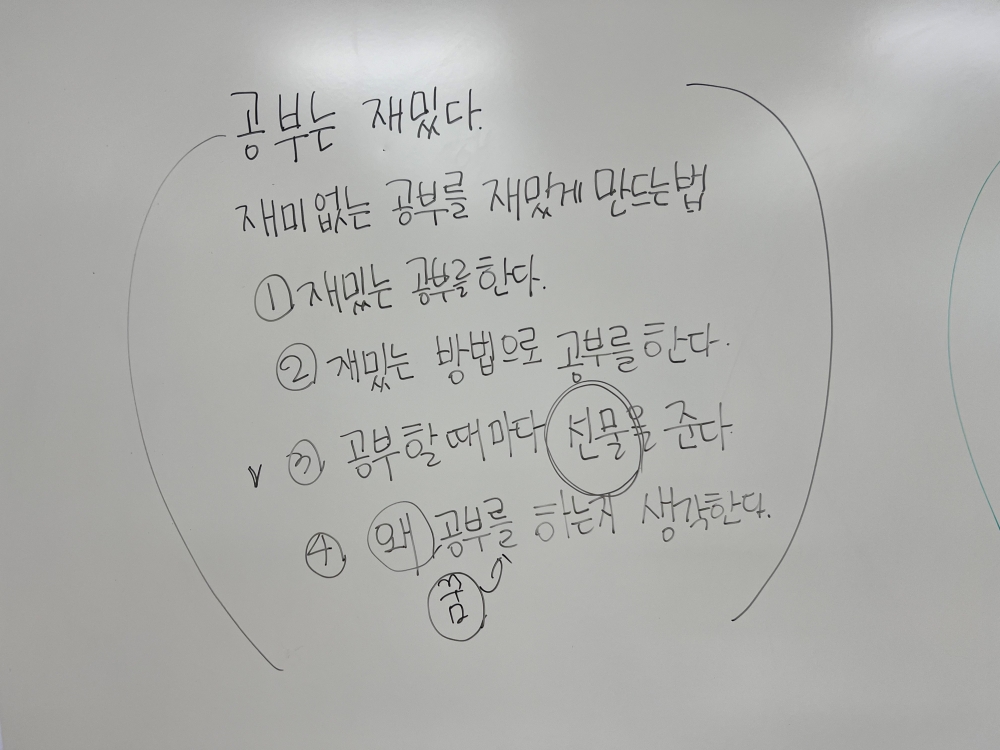 공부는 재밌다.
재미없는 공부를 재밌게 만드는법
① 재밌는 공부를 한다.
② 재밌는 방법으로 공부를 한다.
v ③ 공부할때마다 선물을 준다.
④ 왜 공부를 하는지 생각한다.
꿈